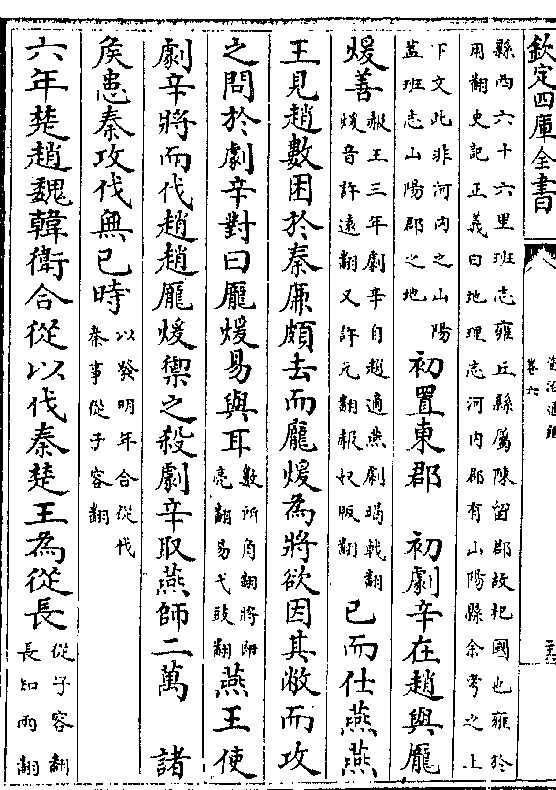 欽定四庫全書
資治通鑑
卷六
縣西六十六里班志雍丘縣屬陳留郡故杞國也雍於
用翻史記正義曰地理志河内郡有山陽縣余考之上
下文此非河内之山陽
蓋班志山陽郡之地
初置東郡 初劇辛在趙與龐
煖善
赧王三年劇辛自趙適燕劇竭戟翻
煖音許遠翻又許元翻赧奴版翻
已而仕燕燕
王見趙數困於秦廉頗去而龐煖為將欲因其敝而攻
之問於劇辛對曰龐煖易與耳
數所角翻將即
亮翻易弋豉翻
燕王使
劇辛將而伐趙趙龐煖禦之殺劇辛取燕師二萬 諸
侯患秦攻伐無已時
以發明年合從伐
秦事從子容翻
六年楚趙魏韓衛合從以伐秦楚王為從長
從子容翻
長知兩翻